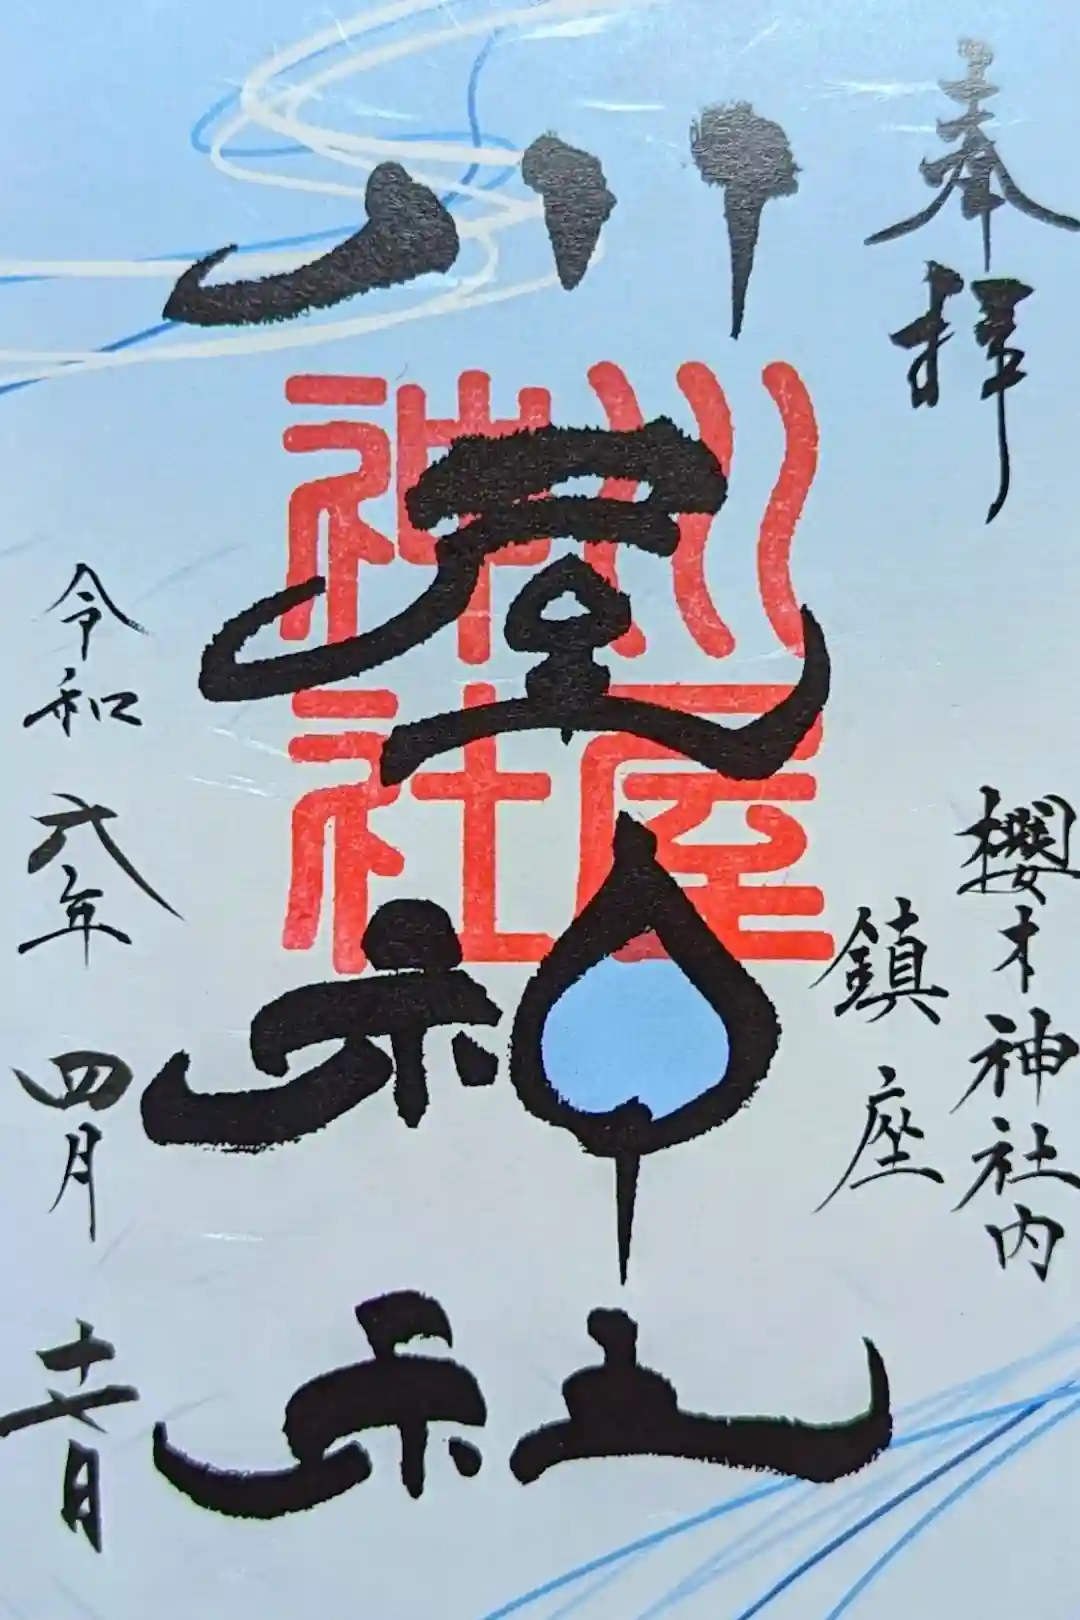 奉拝
櫻木神社内
鎮座
川屋神社
川屋神社
令和六年 四月 十七日